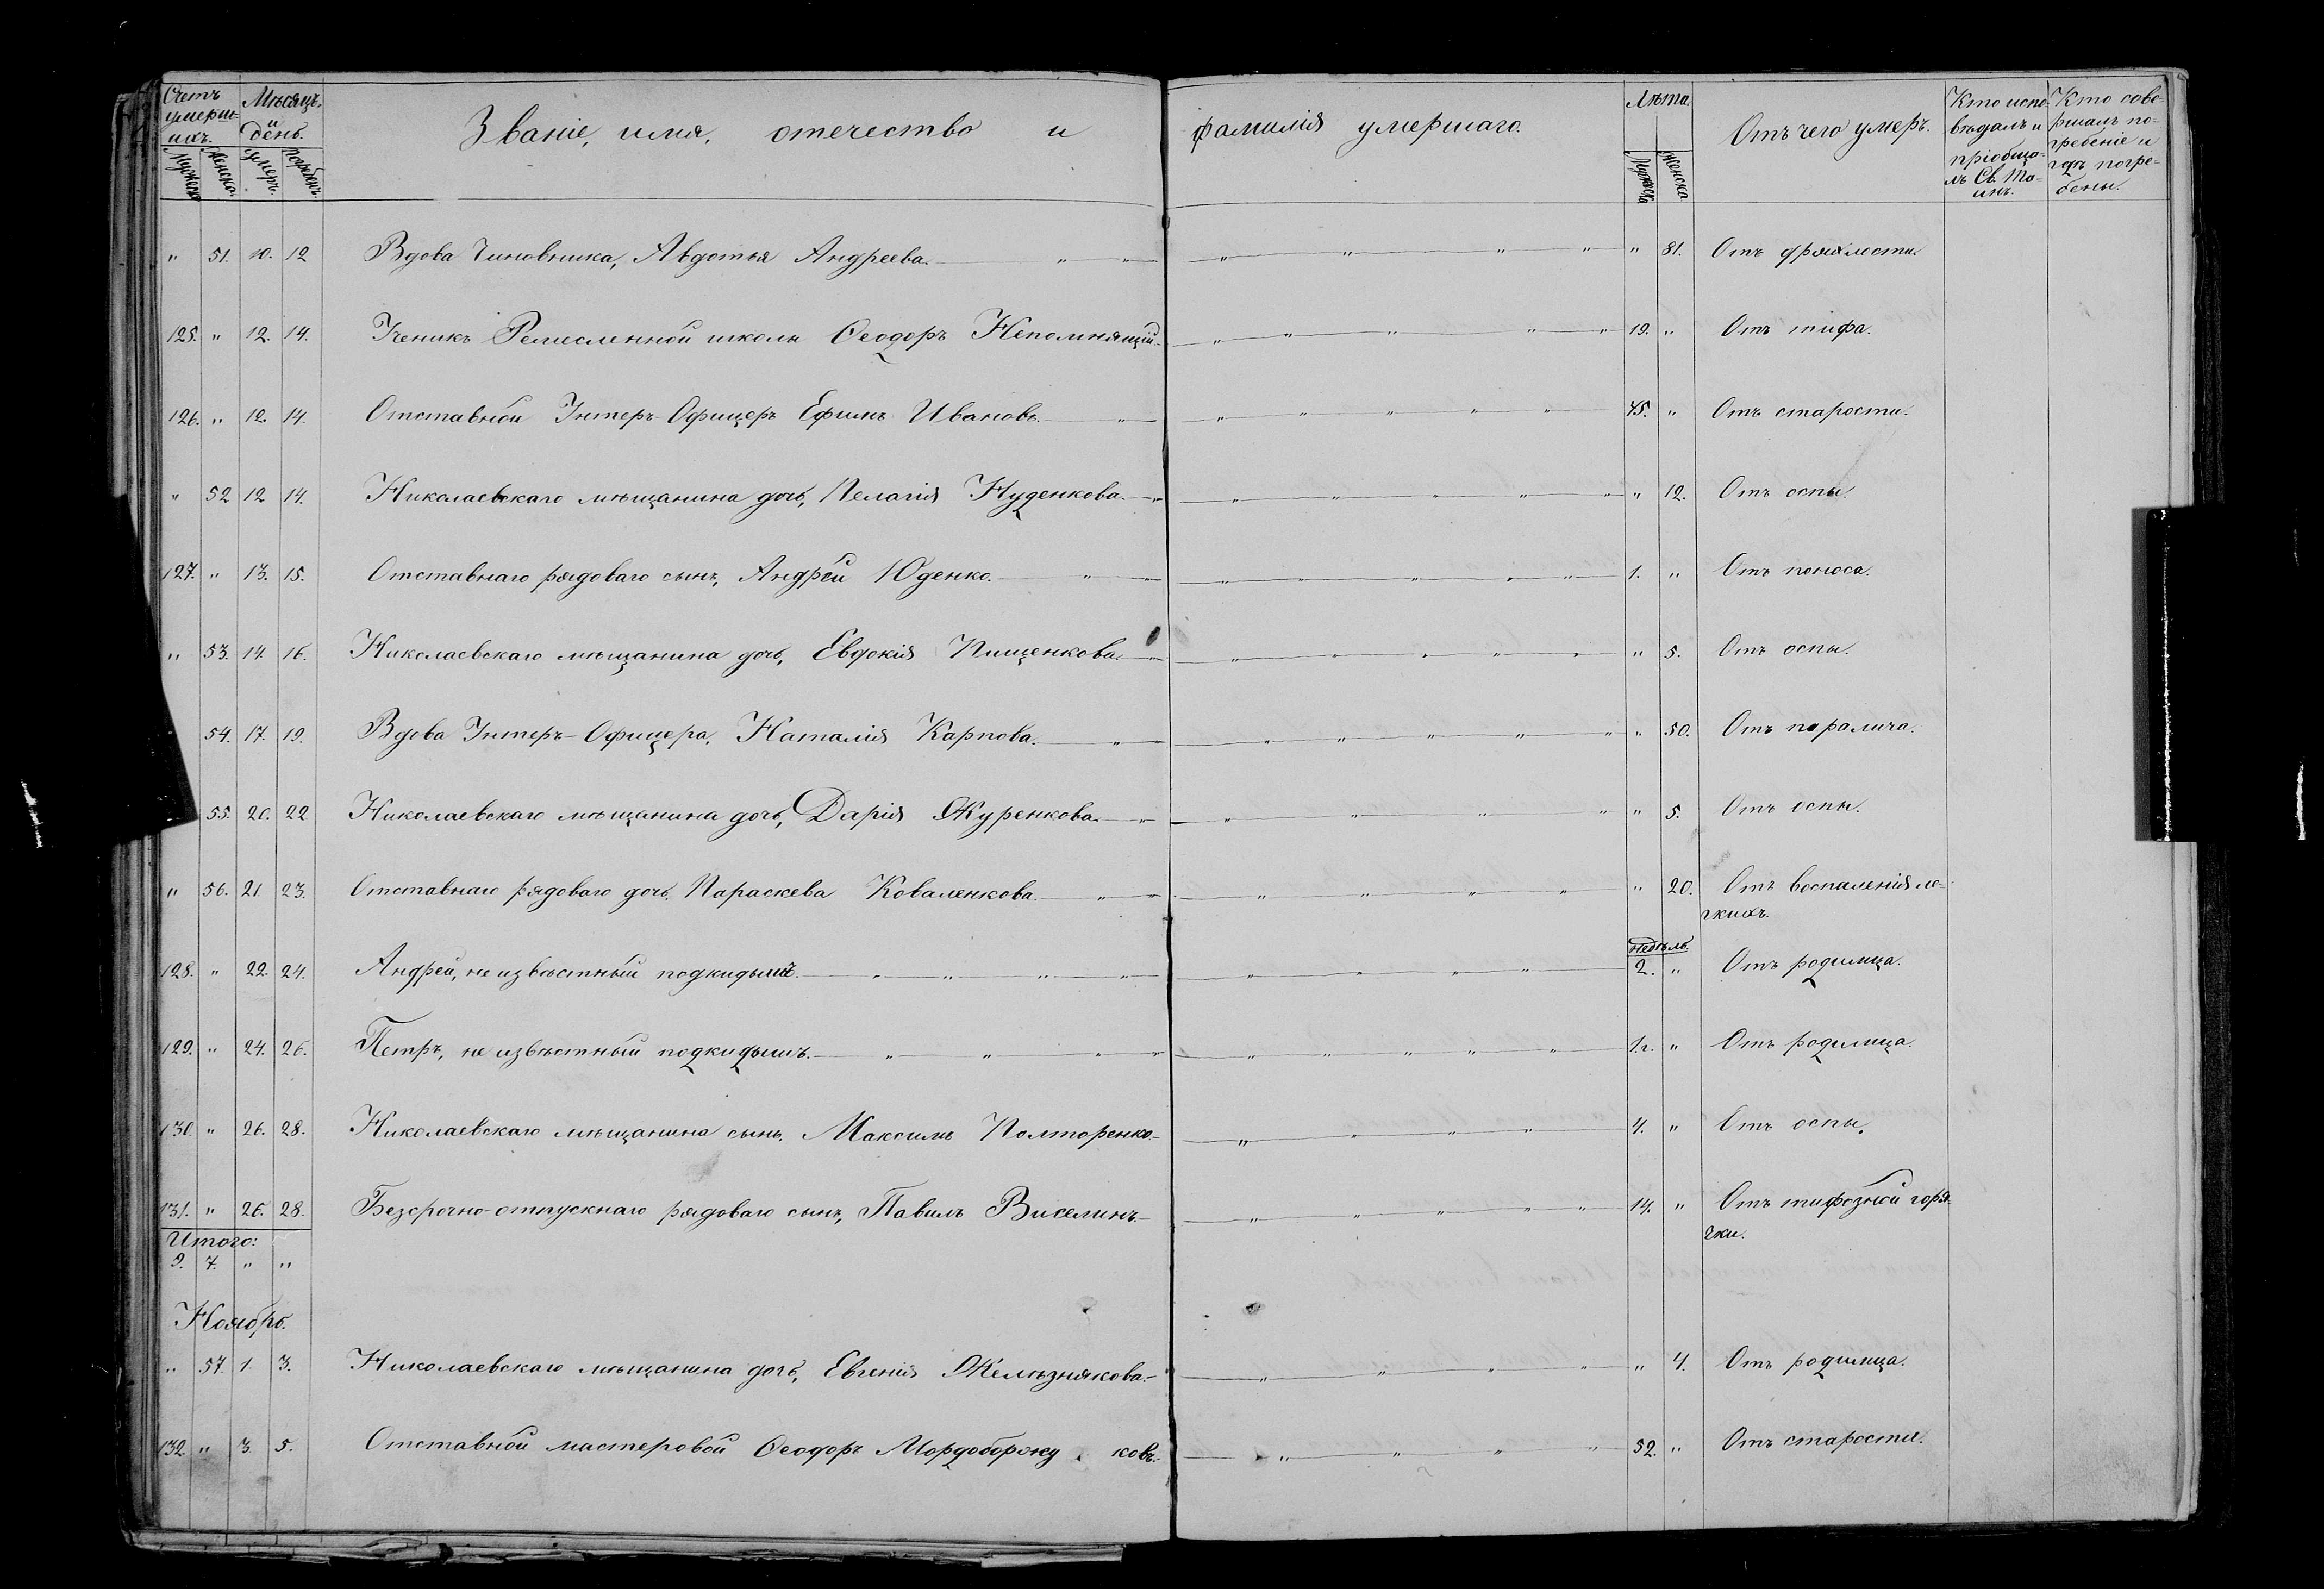 Счетъ умершихъ. Мѣсяцъ и день. Званіе, имя, отечество и фамилія умершаго. Лѣта. Отъ чего умеръ. Кто исповѣдалъ и пріобщалъ Св. Таинъ. Кто совершалъ погребеніе и гдѣ погребены.
Мужеска. Женска. Умеръ. Погребенъ. Мужеска Женска
" 51. 10. 12 Вдова Чиновника, Авдотья Андреева. " 81. Отъ дряхлости.
125. " 12. 14. Ученикъ Ремесленной школы Ѳеодоръ Непомнящій. 19. " Отъ тифа.
126. " 12. 14. Отставной Унтеръ-Офицеръ Ефимъ Ивановъ. 45. " Отъ старости.
" 52 12 14. Николаевскаго мѣщанина дочь, Пелагія Нуденкова. " 12. Отъ оспы.
127. " 13. 15. Отставнаго рядоваго сынъ, Андрей Юденко. 1. " Отъ поноса.
" 53. 14. 16. Николаевскаго мѣщанина дочь, Евдокія Пищенкова. " 5. Отъ оспы.
54. 17. 19. Вдова Унтеръ-Офицера, Наталія Карпова. " 50. Отъ паралича.
55. 20. 22 Николаевскаго мѣщанина дочь, Дарія Журенкова. " 5. Отъ оспы.
" 56. 21. 23. Отставнаго рядоваго дочь Параскева Коваленкова. " 20. Отъ воспаленія ле-
гкихъ.
недѣль.
128. " 22. 24. Андрей, не извѣстный подкидышъ. 2. " Отъ родимца.
129. " 24. 26. Петръ, не извѣстный подкидышъ. 1.г. " Отъ родимца.
130. " 26. 28. Николаевскаго мѣщанина сынъ, Максимъ Полторенко. 4. " Отъ оспы.
131. " 26. 28. Безсрочно-отпускнаго рядоваго сынъ, Павилъ Виселинъ. 14. " Отъ тифозной горя-
чки.
Итого:
9. 7. " "
Ноябрь.
" 57. 1. 3. Николаевскаго мѣщанина дочь, Евгенія Желѣзнякова. " 4. Отъ родимца.
132. " 3. 5. Отставной мастеровой Ѳеодоръ Мордоборожу ковъ. 52. " Отъ старости.